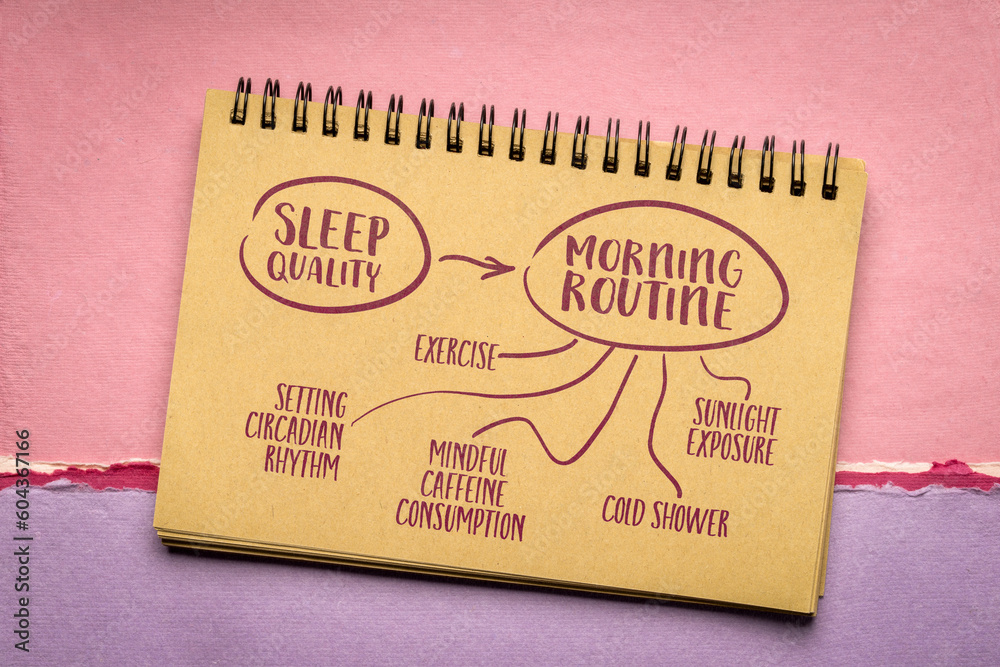 SLEEP
QUALITY
MORNING
ROUTINE
EXERCISE
SETTING
CIRCADIAN
RHYTHM
MINDFUL
CAFFEINE
CONSUMPTION
COLD SHOWER
SUNLIGHT
EXPOSURE
Adobe Stock | #604367166